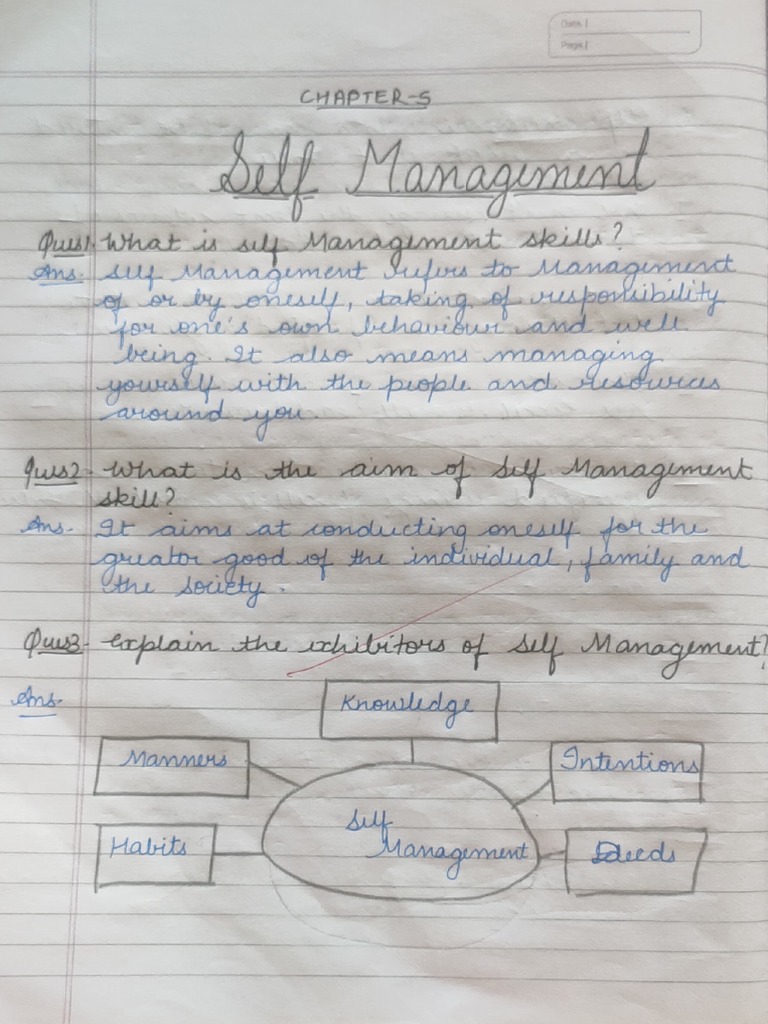 Date |
Page |
CHAPTER-5
Self Management
Ques1. What is self Management skills?
Ans. Self Management refers to Management
of or by oneself, taking of responsibility
for one's own behaviour and well
being. It also means managing
yourself with the people and resources
around you.
Ques2- What is the aim of Self Management
skill?
Ans- It aims at conducting oneself for the
greator good of the individual, family and
the society.
Ques3- Explain the exhibitors of Self Management?
Ans-
Knowledge
Manners
Intentions
Self
Management
Habits
Deeds